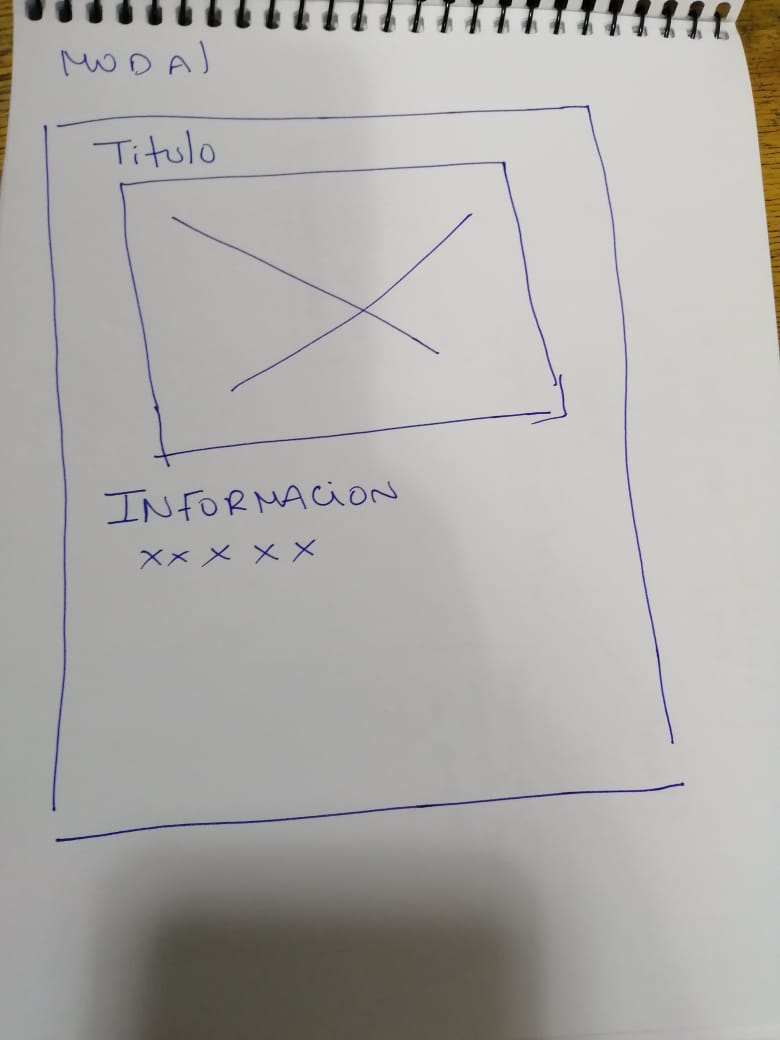 MODAl
Titulo
INFORMACiON
xx x x x